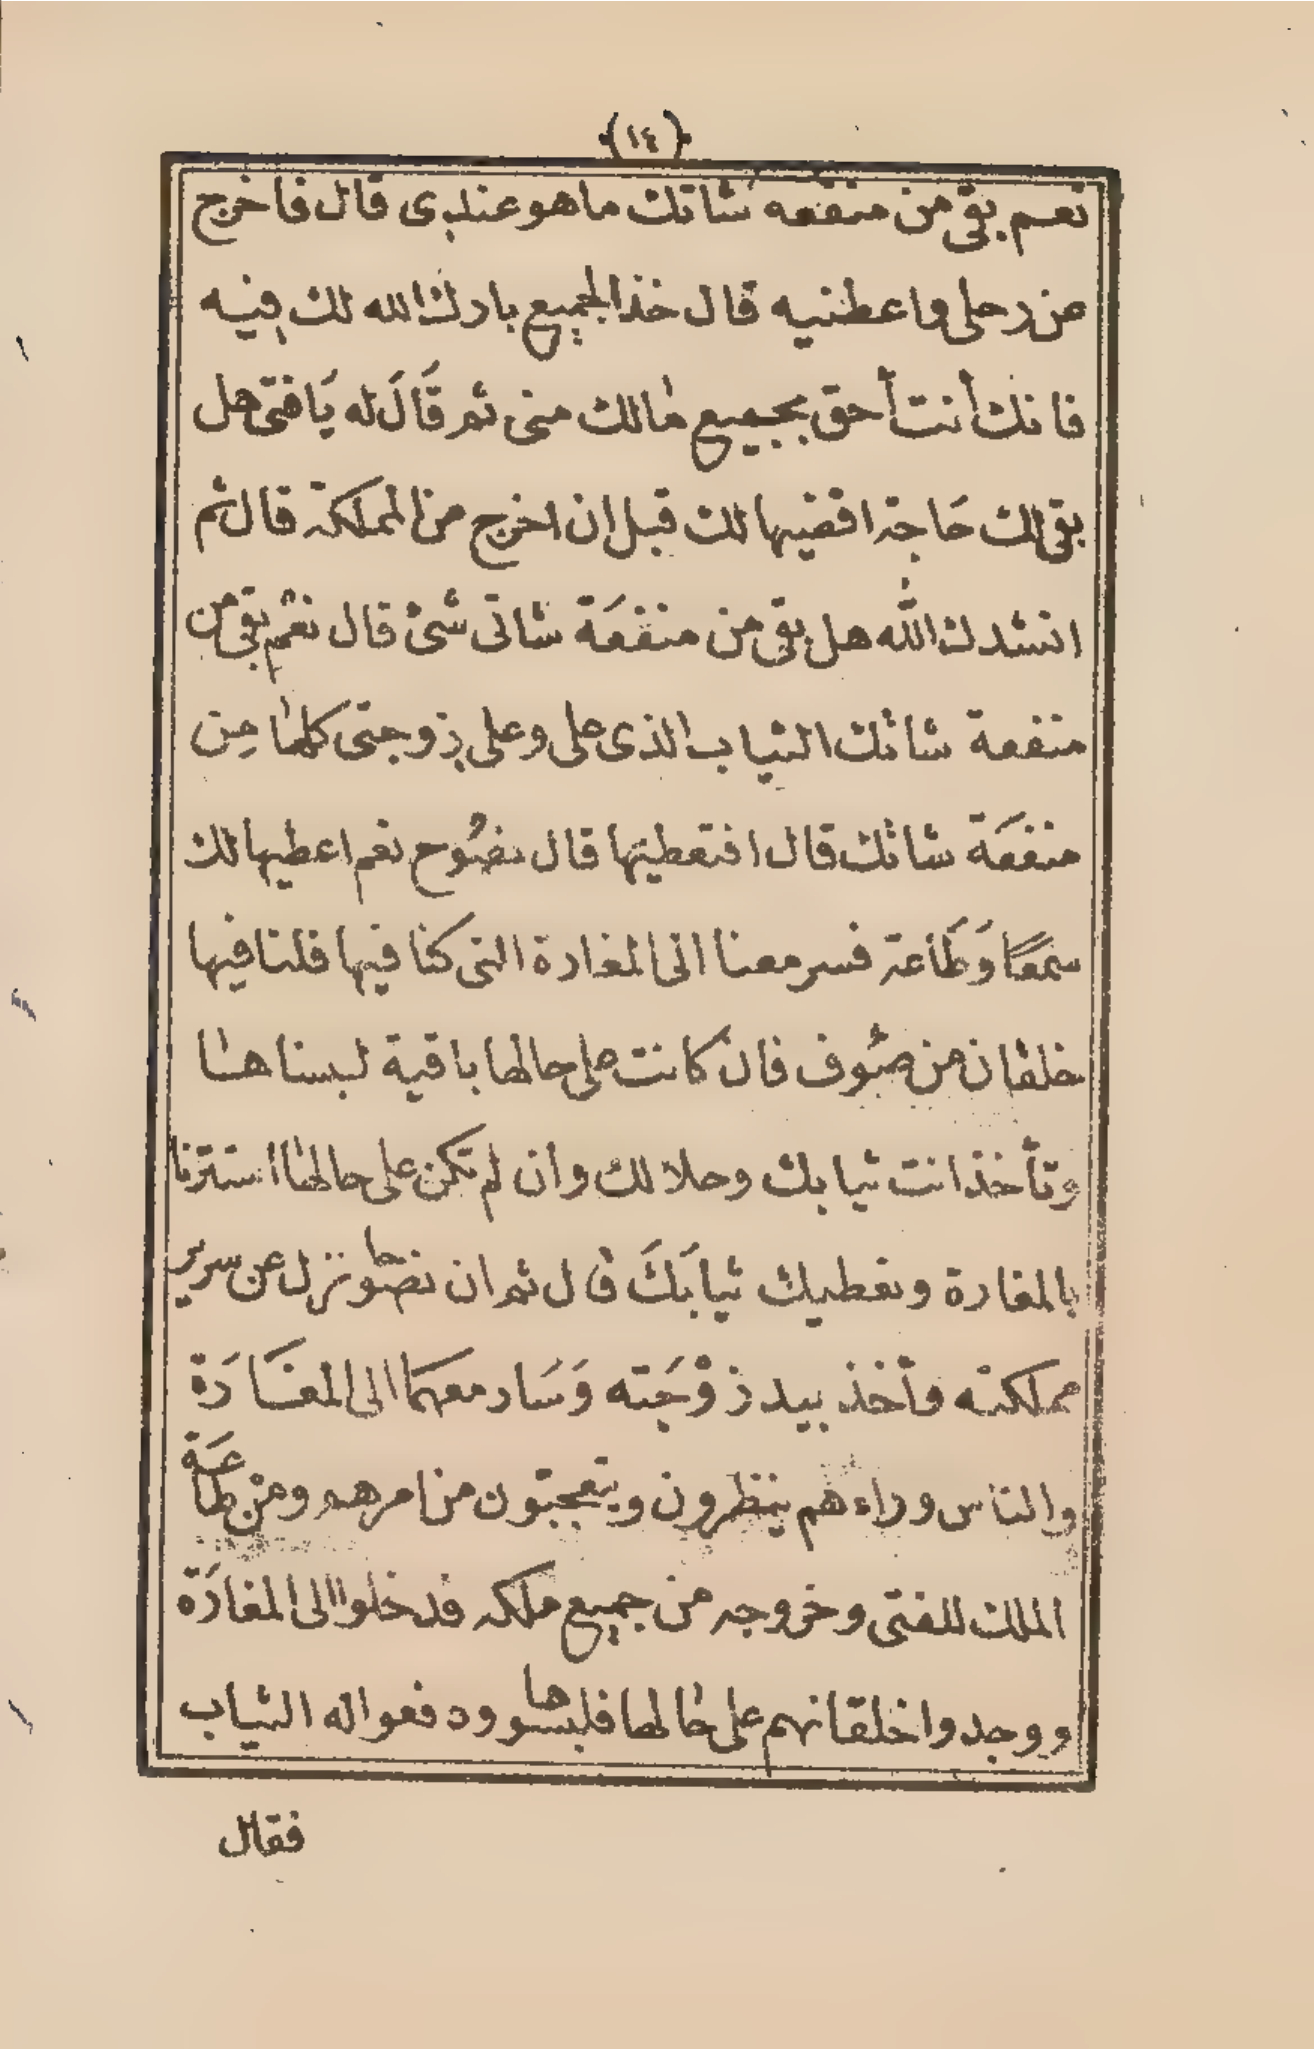 (١٤)
نعم بقى من منفعه شاتك ما هو عندى قال فاخرج
من رحلى واعطنيه قال خذ الجميع بارك الله لك فيه
فانك أنت أحق بجميع مالك منى ثم قَالَ له يَافتى هل
بقى لك حَاجة اقضيها لك قبل ان اخرج من المملكة قال ثم
انشدك الله هل بقى من منفعَة شاتى شئ قال نعم بقى من
منفعة شاتك الثياب الذى على وعلى زوجتى كلها مِن
منفعَة شاتك قال افتعطيها قال نصُوح نعم اعطيها لك
سمعًا وَطَاعة فسر معنا الى المغارة التى كنا فيها فلنا فيها
خلقان من صُوف فان كانت على حالها باقية لبسناها
وتأخذ انت ثيابك وحلالك وان لم تكن على حالها استترنا
بالمغارة ونعطيك ثيابَكَ قال ثم ان نصوحا نزل عن سرير
مملكته وأخذ بيد زوْجَته وَسَار معهما الى المغَارَة
والناس وراءهم ينظرون ويتعجبون من امرهم ومِنْ طاعَة
الملك للفتى وخروجه من جميع ملكه فدخلوا الى المغارَة
ووجدوا خلقانهم على حالها فلبسوها ودفعوا له الثياب
فقال